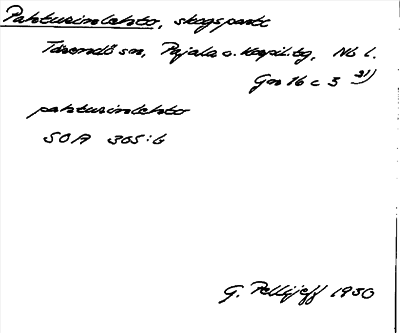 Pahturinlehto, skogspark
Tärendö sn, Pajala o. Korpil. tg, Nb l.
Gn 16 c 3 31)
pahturinlehto
SOA 365:6
G. Pellijeff 1950